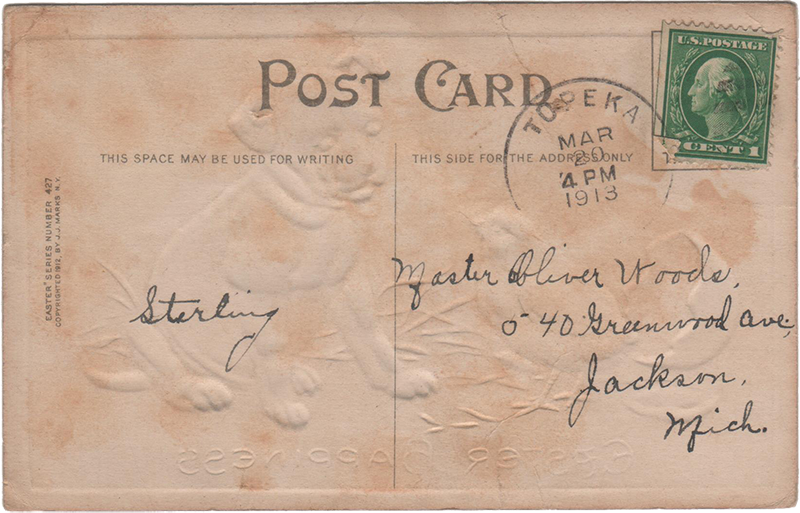 POST CARD
U.S. POSTAGE
1 CENT 1
TOPEKA
MAR
20
4 PM
1913
THIS SPACE MAY BE USED FOR WRITING
THIS SIDE FOR THE ADDRESS ONLY
EASTER SERIES NUMBER 427
COPYRIGHTED 1912, BY J.J. MARKS N.Y.
Sterling
Master Oliver Woods,
540 Greenwood ave,
Jackson,
Mich.
EASTER HAPPINESS